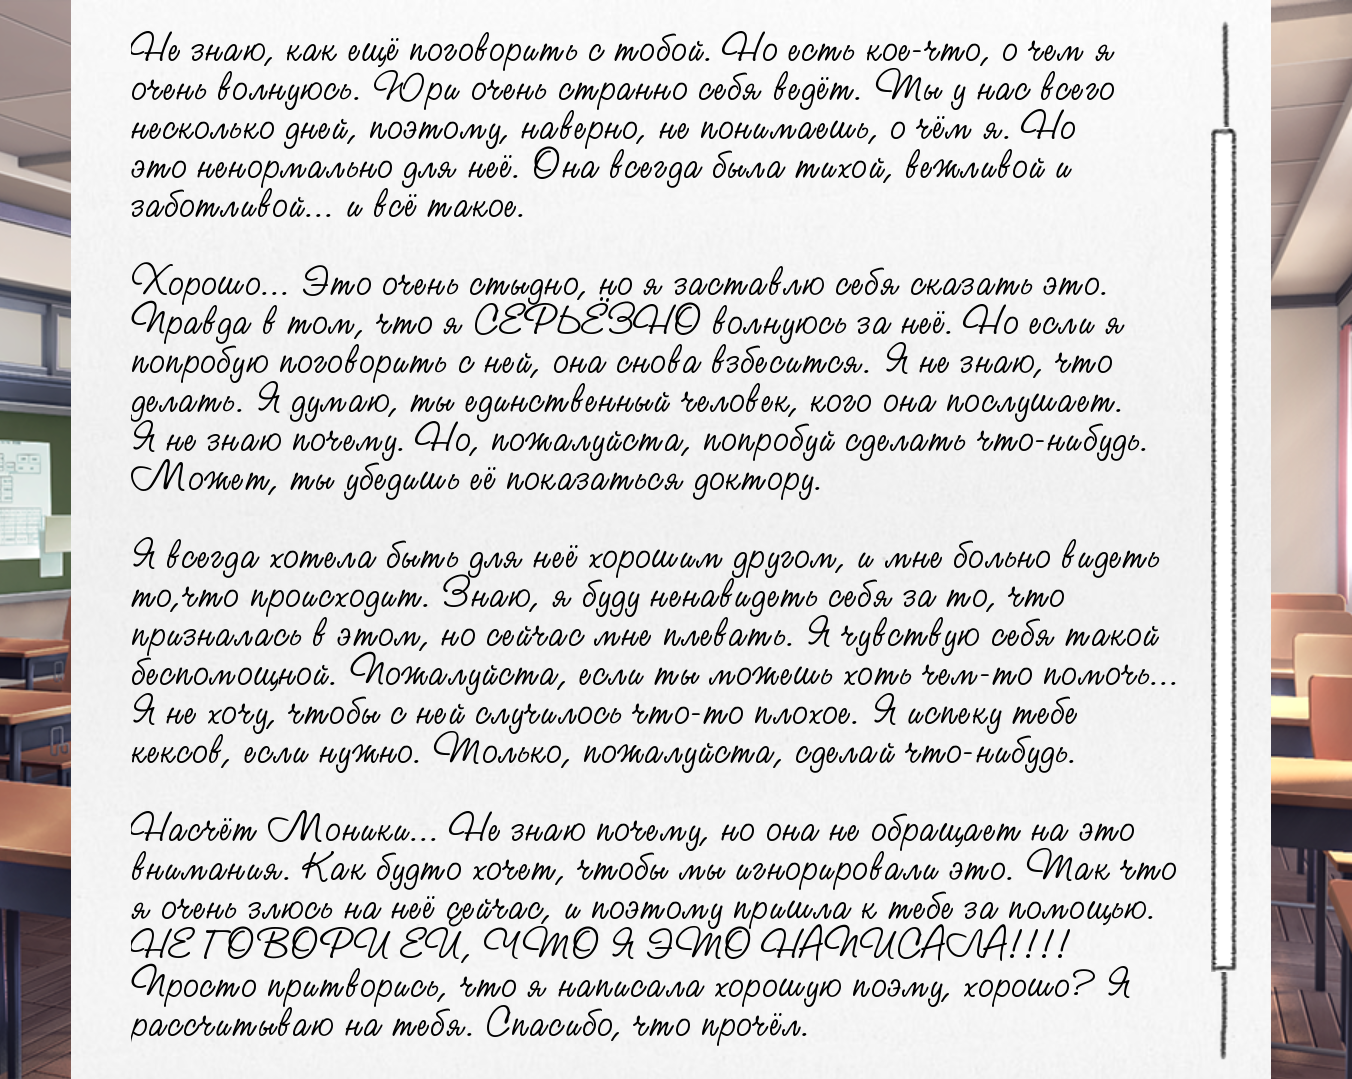 Не знаю, как ещё поговорить с тобой. Но есть кое-что, о чем я
очень волнуюсь. Юри очень странно себя ведёт. Ты у нас всего
несколько дней, поэтому, наверно, не понимаешь, о чём я. Но
это ненормально для неё. Она всегда была тихой, вежливой и
заботливой... и всё такое.
Хорошо... Это очень стыдно, но я заставлю себя сказать это.
Правда в том, что я СЕРЬЁЗНО волнуюсь за неё. Но если я
попробую поговорить с ней, она снова взбесится. Я не знаю, что
делать. Я думаю, ты единственный человек, кого она послушает.
Я не знаю почему. Но, пожалуйста, попробуй сделать что-нибудь.
Может, ты убедишь её показаться доктору.
Я всегда хотела быть для неё хорошим другом, и мне больно видеть
то,что происходит. Знаю, я буду ненавидеть себя за то, что
призналась в этом, но сейчас мне плевать. Я чувствую себя такой
беспомощной. Пожалуйста, если ты можешь хоть чем-то помочь...
Я не хочу, чтобы с ней случилось что-то плохое. Я испеку тебе
кексов, если нужно. Только, пожалуйста, сделай что-нибудь.
Насчёт Моники... Не знаю почему, но она не обращает на это
внимания. Как будто хочет, чтобы мы игнорировали это. Так что
я очень злюсь на неё сейчас, и поэтому пришла к тебе за помощью.
НЕ ГОВОРИ ЕЙ, ЧТО Я ЭТО НАПИСАЛА!!!!
Просто притворись, что я написала хорошую поэму, хорошо? Я
рассчитываю на тебя. Спасибо, что прочёл.